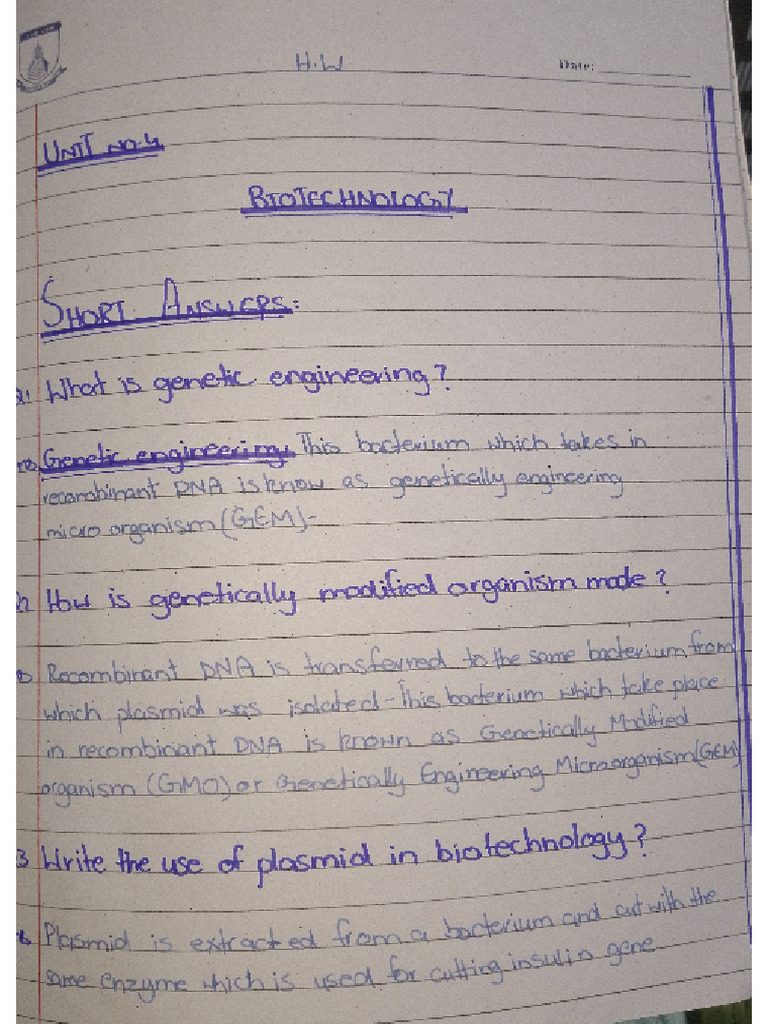 H.W
Date:
UNIT NO.4
BIOTECHNOLOGY
SHORT ANSWERS:
What is genetic engineering?
Genetic engineering: This bacterium which takes in
recombinant DNA is know as genetically engineering
micro organism (GEM)-
How is genetically modified organism made?
Recombinant DNA is transferred to the same bacterium from
which plasmid was isolated-This bacterium which take place
in recombinant DNA is known as Genetically Modified
organism (GMO) or Genetically Engineering Microorganism(GEM)
3 Write the use of plasmid in biotechnology?
Plasmid is extracted from a bacterium and cut with the
same enzyme which is used for cutting insulin gene